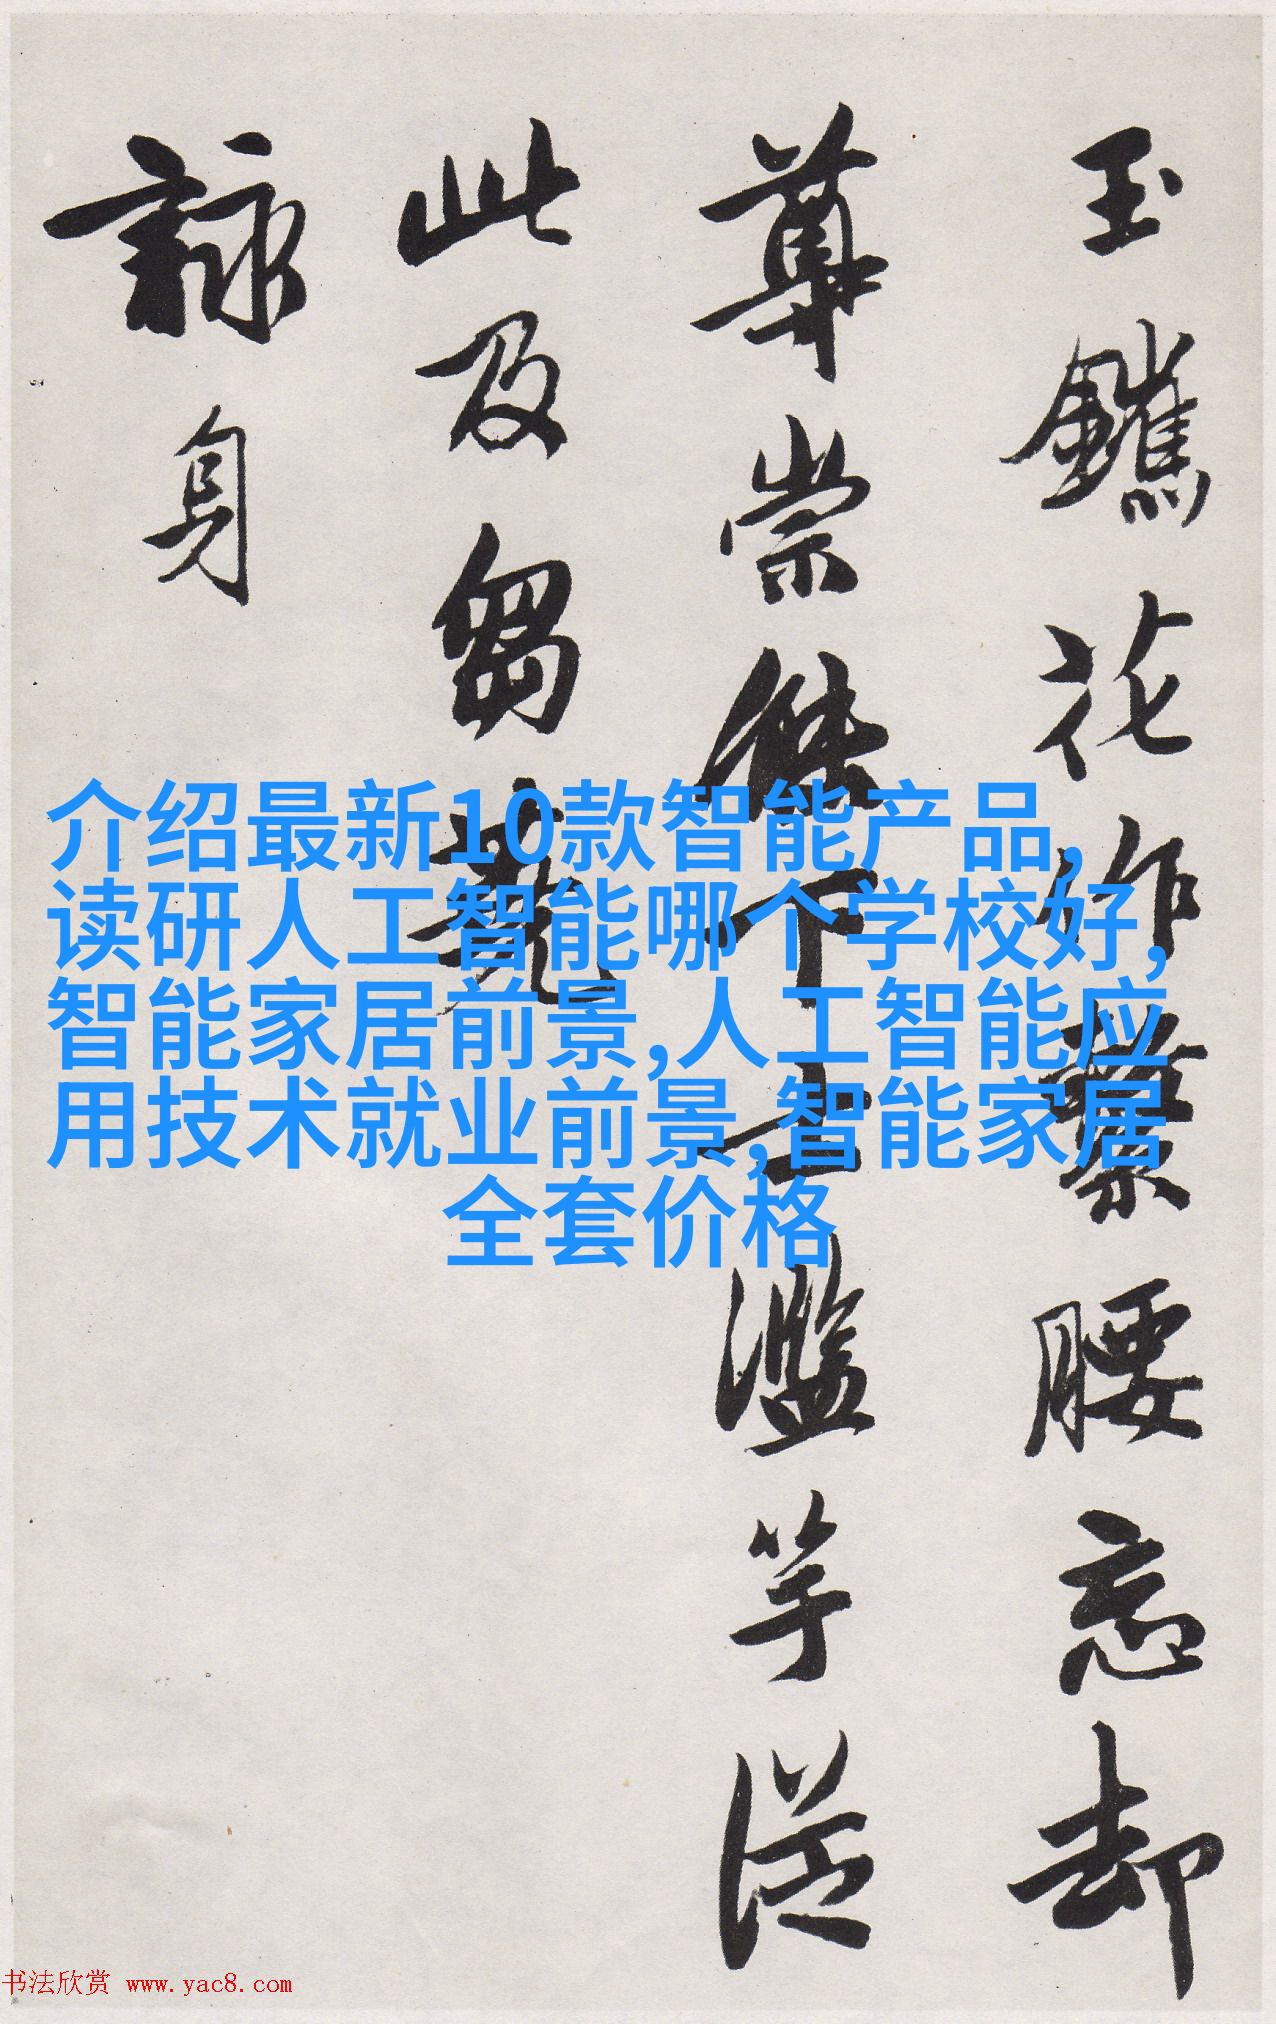 玉鑣花作繫腰忘却
尊崇傑下士濫竽從
此及芻蕘
詠身
介绍最新10款智能产品,
读研人工智能哪个学校好,
智能家居前景,人工智能应
用技术就业前景,智能家居
全套价格
书法欣赏 www.yac8.com